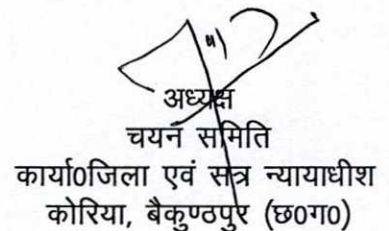 अध्यक्ष
चयन समिति
कार्या0जिला एवं सत्र न्यायाधीश
कोरिया, बैकुण्ठपुर (छ0ग0)